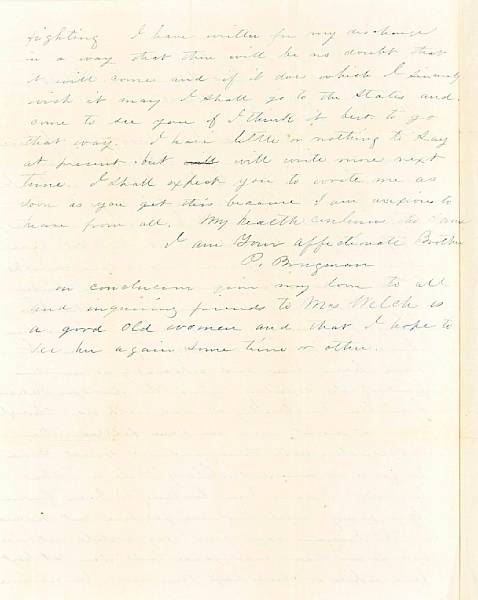 fighting I have written for my discharge
in a way that there will be no doubt that
it will come and if it does which I sincerely
wish it may I shall go to the States and
come to see you if I think it best to go
that way. I have little or nothing to say
at present but will write more next
time. I shall expect you to write me as
soon as you get this because I am anxious to
heare from all. My health continues the same
I am Your affectionate Brother
P. Bringman
in conclusion give my love to all
and inquiring friends to Mrs. Welch is
a good old woman and that I hope to
see her again some time or other.